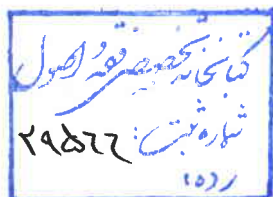 کتابخانه تخصصی فقه و اصول
شماره ثبت: ۲۹۵۶۶